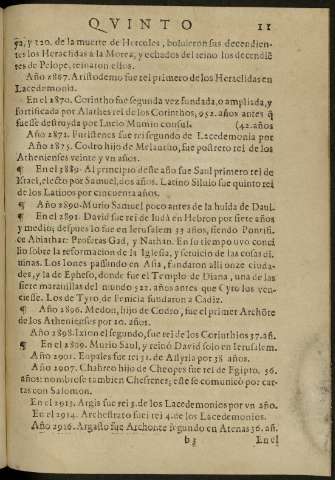 QVINTO 11
ya, y 120. de la muerte de Hercoles, boluieron sus decendien-
tes los Heraclidas a la Morea, y echados del reino los decendiē
tes de Pelope, reinaron ellos.
Año 2867. Aristodemo fue rei primero de los Heraclidas en
Lacedemonia.
En el 1870. Corintho fue segunda vez fundada, o ampliada, y
fortificada por Alathes rei de los Corinthos, 952. años antes q̄
fuesse destruyda por Lucio Mumio consul. (42. años
Año 2871. Euristenes fue rei segundo de Lacedemonia por
Año 2875. Codro hijo de Melantho, fue postrero rei de los
Athenienses veinte y vn años.
¶ En el 2889. Al principio deste año fue Saul primero rei de
Israel, electo por Samuel, dos años. Latino Siluio fue quinto rei
de los Latinos por cincuenta años.
¶ Año 2890. Murio Samuel poco antes de la huida de Dauid.
¶ En el 2891. Dauid fue rei de Iudà en Hebron por siete años
y medio; despues lo fue en Ierusalem 33 años, siendo Pontifi-
ce Abiathar: Profetas Gad, y Nathan. En su tiempo uvo conci
lio sobre la reformacion de la Iglesia, y seruicio de las cosas di
uinas. Los Iones passando en Asia, fundaron alli onze ciuda-
des, y la de Epheso, donde fue el Templo de Diana, una de las
siete marauillas del mundo 522. años antes que Cyro los ven-
ciesse. Los de Tyro de Fenicia fundaron a Cadiz.
¶ Año 2896. Medon, hijo de Codro, fue el primer Archōte
de los Athenienses por 20. años.
Año 2898. Ixion el segundo, fue rei de los Corinthios 37. añ.
¶ En el 2899. Murio Saul, y reinò Dauid solo en Ierusalem.
Año 2901. Eupales fue rei 31. de Assyria por 38 años.
Año 2907. Chabreo hijo de Cheopes fue rei de Egipto. 56.
años: nombrose tambien Chefrenes; este se comunicò por car-
tas con Salomon.
En el 2913. Argis fue rei 3. de los Lacedemonios por vn año.
En el 2914. Archestrato fue rei 4. de los Lacedemonios.
Año 2916. Argasto fue Archonte segundo en Atenas 36. añ.
b3 En el